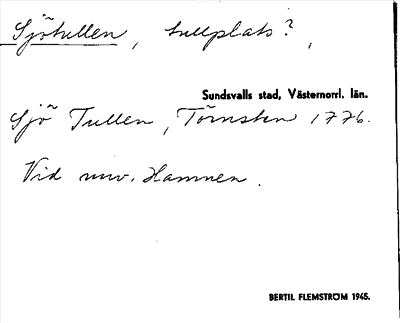 Sjötullen, tullplats?,
Sundsvalls stad, Västernorrl. län.
Sjö Tullen, Törnsten 1776.
Vid nuv. Hamnen.
BERTIL FLEMSTRÖM 1945.